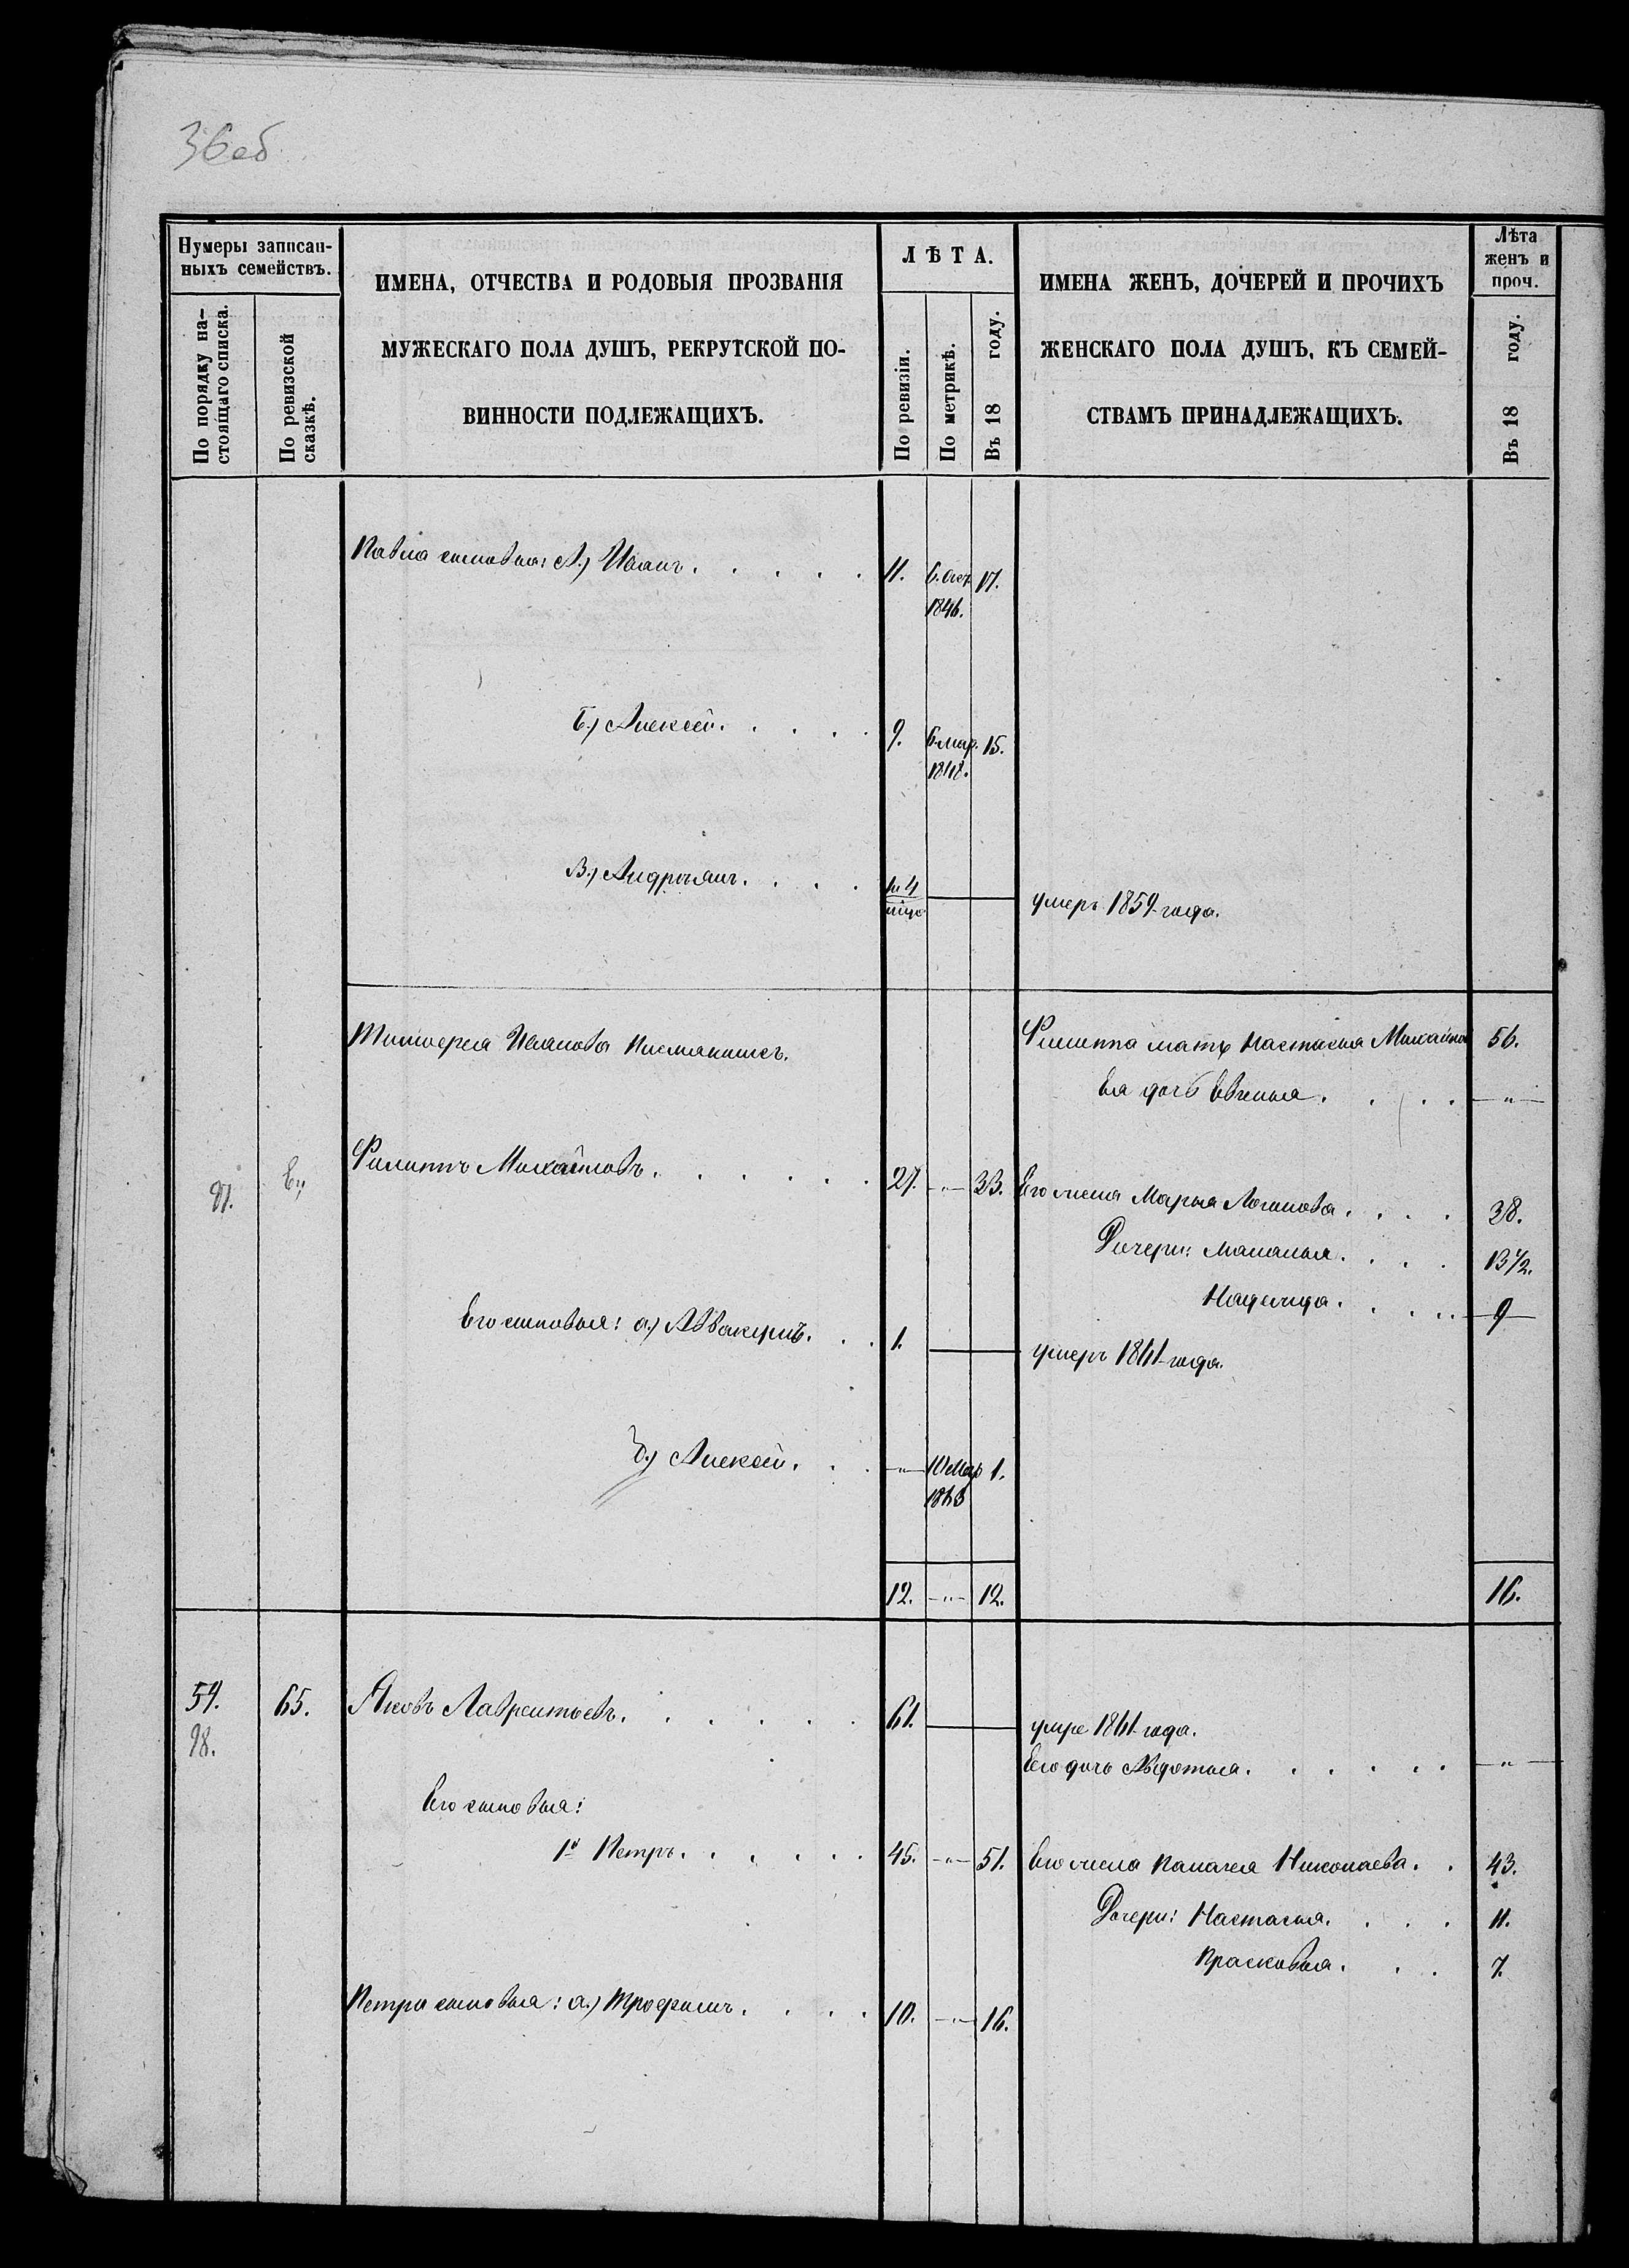 36об
Нумеры записан-
ныхъ семействъ.
По порядку на-
стоящаго списка.
По ревизской
сказкѣ.
ИМЕНА, ОТЧЕСТВА И РОДОВЫЯ ПРОЗВАНІЯ
МУЖЕСКАГО ПОЛА ДУШЪ, РЕКРУТСКОЙ ПО-
ВИННОСТИ ПОДЛЕЖАЩИХЪ.
ЛѢТА.
По ревизіи.
По метрикѣ.
Въ 18 году.
ИМЕНА ЖЕНЪ, ДОЧЕРЕЙ И ПРОЧИХЪ
ЖЕНСКАГО ПОЛА ДУШЪ, КЪ СЕМЕЙ-
СТВАМЪ ПРИНАДЛЕЖАЩИХЪ.
Лѣта
женъ и
проч.
Въ 18 году.
Павла сыновья: А.) Иванъ. 11. 6. Окт. 17.
1846.
Б.) Алексей. 9. 6 мар. 15.
1848.
В.) Андреянъ. 4 умеръ 1859 года.
Тимоѳея Иванова племянникъ. Филиппа мать Настасья Михайло 56.
Ея дочь Евгенья. - " -
97. Филиппъ Михайловъ. 27. - " - 33. Его жена Марья Логинова. 38.
Дочери: Маланья. 13 1/2.
Надежда. 9
Его сыновья: а.) Аввакумъ. 1. умеръ 1861 года.
б.) Алексей. - " - 10 Мар 1.
1863
12. - " - 12. 16.
59. 65. Яковъ Лаврентьевъ. 61. умре 1861 года.
98.
Его дочь Авдотья. - " -
Его сыновья:
1й Петръ. 45. - " - 51. Его жена Палагея Николаева. 43.
Дочери: Настасья. 11.
Прасковья. 7.
Петра сыновья: а.) Трофимъ. 10. - " - 16.